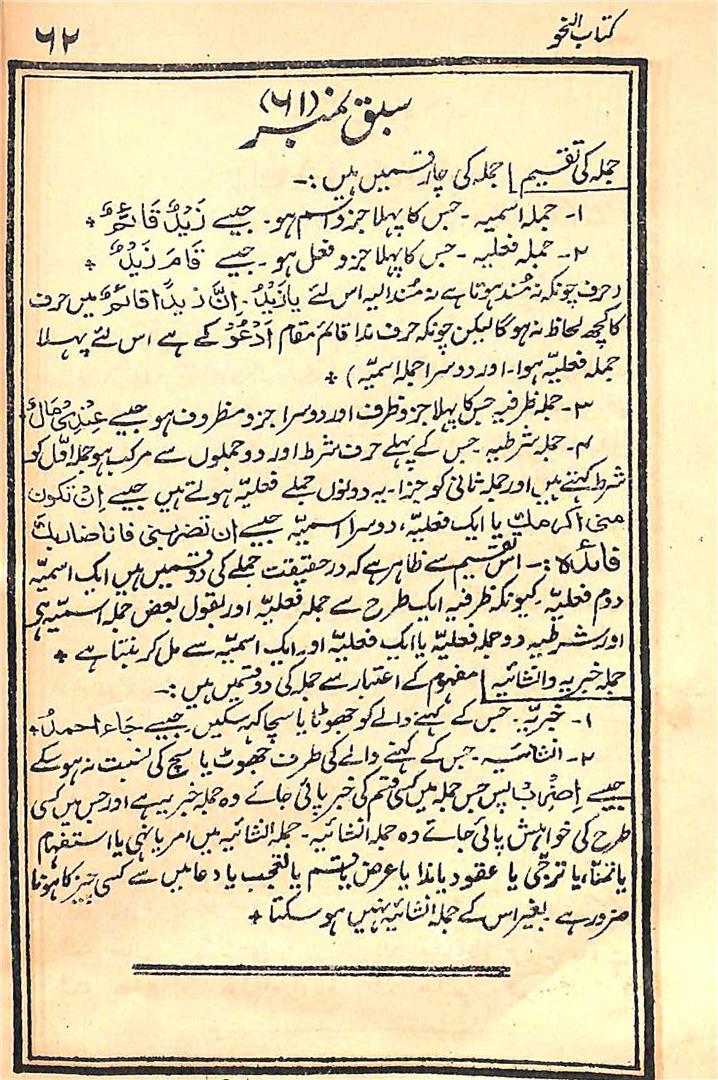 کتاب النحو
۶۲
سبق نمبر (۶۱)
جملہ کی تقسیم | جملہ کی چار قسمیں ہیں :۔
۱۔ جملہ اسمیہ ۔ جس کا پہلا جزو اسم ہو۔ جیسے زَیْدٌ قَائِمٌ ٭
۲۔ جملہ فعلیہ ۔ جس کا پہلا جزو فعل ہو ۔ جیسے قَامَ زَیْدٌ ٭
(حرف چونکہ نہ مُسند ہوتا ہے نہ مُسندالیہ اس لئے یازَیْدُ ۔ اِنَّ زیدًا قائمٌ میں حرف
کا کچھ لحاظ نہ ہوگا لیکن چونکہ حرف ندا قائم مقام اَدْعُوْ کے ہے اس لئے پہلا
جملہ فعلیہ ہوا۔ اور دوسرا جملہ اسمیّہ ) ٭
۳۔ جملہ ظرفیہ جس کا پہلا جزو ظرف اور دوسرا جزو مظروف ہو جیسے عِنْدِیْ مَالٌ ٭
۴۔ جملہ شرطیہ ۔ جس کے پہلے حرف شرط اور دو جملوں سے مرکب ہو جملہ اوّل کو
شرط کہتے ہیں اور جملہ ثانی کو جزا ۔ یہ دونوں جملے فعلیّہ ہوتے ہیں جیسے اِنْ تکرمْ
منی اکرمک یا ایک فعلیّہ، دوسرا اسمیّہ جیسے ان تضربنی فانا ضاربک
فائدہ :۔ اس تقسیم سے ظاہر ہے کہ درحقیقت جملے کی دو قسمیں ہیں ایک اسمیّہ
دوم فعلیّہ ۔ کیونکہ ظرفیہ ایک طرح سے جملہ فعلیّہ اور بقول بعض جملہ اسمیّہ ہی
اور شرطیہ دو جملہ فعلیّہ یا ایک فعلیّہ اور ایک اسمیّہ سے مل کر بنتا ہے ٭
جملہ خبریہ وانشائیہ | مفہوم کے اعتبار سے جملہ کی دو قسمیں ہیں :۔
۱۔ خبریّہ ۔ جس کے کہنے والے کو جھوٹا یا سچا کہہ سکیں۔ جیسے جَاءَ احمدُ ٭
۲۔ انشائیہ ۔ جس کے کہنے والے کی طرف جھوٹ یا سچ کی نسبت نہ ہو سکے
جیسے اِضْرِبْ پس جس جملہ میں کسی قسم کی خبر پائی جائے وہ جملہ خبریہ ہے اور جس میں کسی
طرح کی خواہش پائی جائے وہ جملہ انشائیہ ۔ جملہ انشائیہ میں امر یا نہی یا استفہام
یا تمنّا، یا ترجّی یا عقود یا ندا یا عرض یا قسم یا تعجب یا دعا میں سے کسی چیز کا ہونا
ضرور ہے بغیر اس کے جملہ انشائیہ نہیں ہو سکتا ٭